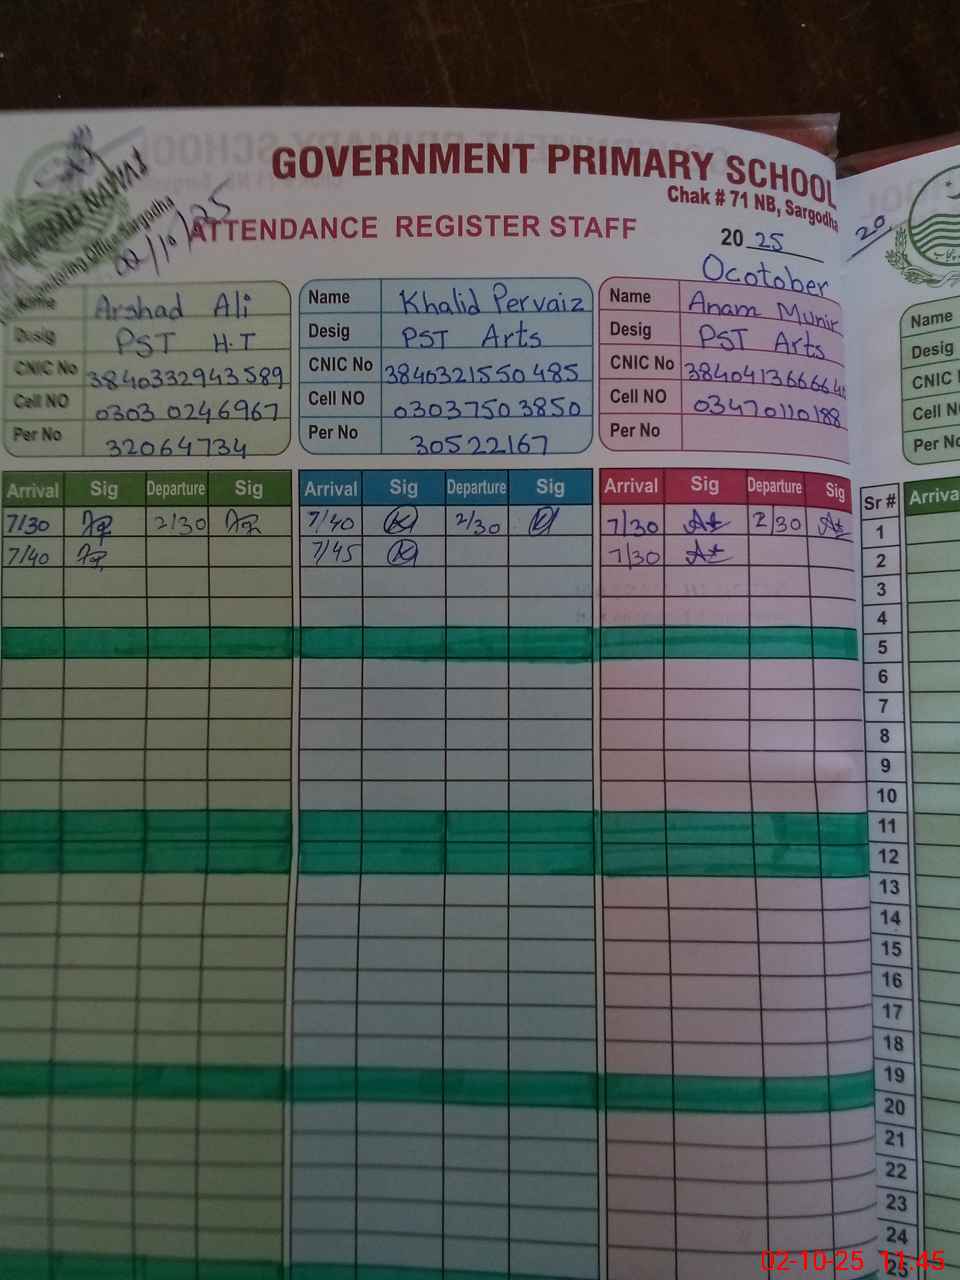 GOVERNMENT PRIMARY SCHOOL
Chak # 71 NB, Sargodha
ATTENDANCE REGISTER STAFF
Monitoring Office Sargodha
02/10/25
20 25
Ocotober
Name Arshad Ali
Desig PST H.T
CNIC No 3840332943589
Cell NO 0303 0246967
Per No 32064734
Name Khalid Pervaiz
Desig PST Arts
CNIC No 3840321550485
Cell NO 03037503850
Per No 30522167
Name Anam Munir
Desig PST Arts
CNIC No 384041366664
Cell NO 03470110188
Per No
Arrival Sig Departure Sig Arrival Sig Departure Sig Arrival Sig Departure Sig Sr #
7/30 2/30 7/40 2/30 7/30 2/30 1
7/40 7/45 7/30 2
3
4
5
6
7
8
9
10
11
12
13
14
15
16
17
18
19
20
21
22
23
24
25
20
Name
Desig
CNIC
Cell N
Per No
Arriva
02-10-25 11:45